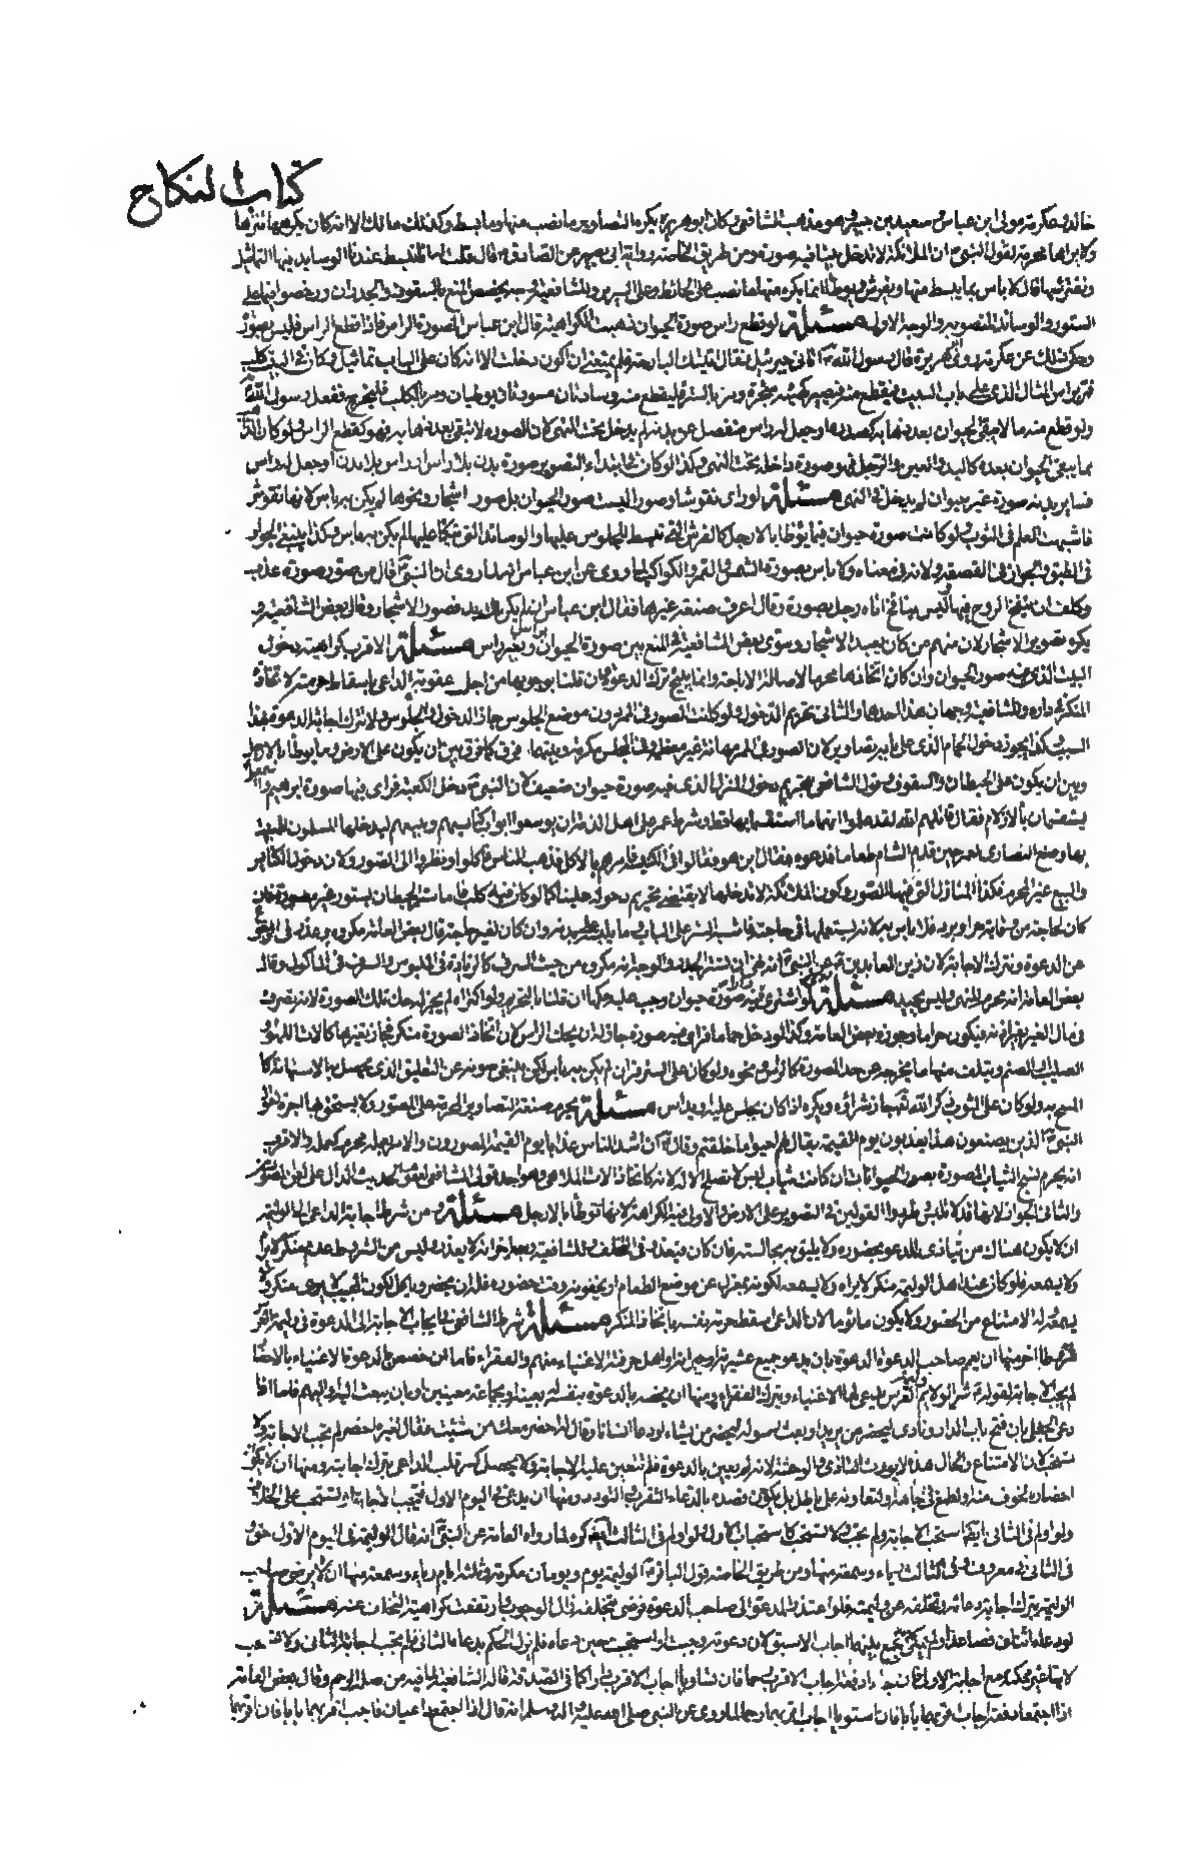 كتاب النكاح
خالد وعكرمة مولى ابن عباس وسعيد بن جبير وهو مذهب الشافعي وكان ابو هريرة يكره التصاوير ما نصب منها وما بسط وكذلك مالك الا انه كان يكرهها تنزها
ولا يراها محرمة لقول النبي ان الملائكة لا تدخل بيتا فيه صورة ومن طريق الخاصة رواية ابي بصير عن الصادق قال قلت انما تبسط عندنا الوسايد فيها التماثيل
ونفترشها قال لا باس بما يبسط منها ويفترش ويوطأ انما يكره منها ما نصب على الحائط وعلى السرير وللشافعية وجه يخصص المنع بالسقوف والجدران ورخصوا فيما على
الستور والوسائد المنصوبة والوجه الاول مسئلة لو قطع راس صورة الحيوان ذهبت الكراهية قال ابن عباس الصورة الراس فاذا قطع الراس فليس بصورة
وحكى ذلك عن عكرمة وروى ابو هريرة قال رسول الله اتاني جبرئيل فقال اتيتك البارحة فلم يمنعني ان اكون دخلت الا انه كان على الباب تماثيل وكان في البيت كلب
فمر براس التمثال الذي على باب البيت فيقطع فيصير كهيئة شجرة ومر بالستر فليقطع منه وسادتان منبوذتان يوطيان ومر بالكلب فليخرج ففعل رسول الله
ولو قطع منه ما لا يبقى الحيوان بعد ذهابه كصدره او جعل له راس منفصل عن بدنه لم يدخل تحت النهي لان الصورة لا تبقى بعد ذهابه فهو كقطع الراس ولو كان الذاهب
مما يبقى الحيوان بعده كاليد والعين والرجل فهو صورة داخلة تحت النهي وكذا لو كان في ابتداء التصوير صورة بدن بلا راس او راس بلا بدن او جعل له راس
وساير بدنه صورة غير حيوان لم يدخل في النهي مسئلة لو راى نقوشا وصورا ليست صور الحيوان بل صور اشجار ونحوها لم يكن به باس لانها نقوش
فاشبهت العلم في الثوب ولو كانت صورة حيوان فيما يوطأ بالارجل كالفرش التي تبسط للجلوس عليها والوسائد التي يتكأ عليها لم يكن به باس وكذا ينبغي الجواز
في الطبق والخوان في القصعة ولانه في معناه ولا باس بصورة الشمس والقمر والكواكب لما روى عن ابن عباس انه لما روى ان النبي قال من صور صورة عذب
وكلف ان ينفخ الروح فيها وليس بنافخ اتاه رجل بصورة وقال اعرف صنعة غيرها فقال ابن عباس ان لم يكن بد فصور الاشجار وقال بعض الشافعية
يكره تصوير الاشجار لان منهم من كان يعبد الاشجار وسوى بعض الشافعية في المنع بين صورة الحيوان براس وبغير راس مسئلة الاقرب كراهية دخول
البيت الذي فيه صور الحيوان وان كان اتخاذها محرما لاصالة الاباحة وانما يبيح ترك الدعوة ان قلنا بوجوبها من اجل عقوبة الداعي باسقاط حرمته لاتخاذه
المنكر في داره وللشافعية وجهان هذا احدهما والثاني تحريم الدخول ولو كانت الصور في الممر دون موضع الجلوس جاز الدخول والجلوس ولا تترك اجابة الدعوة بهذا
السبب وكذا يجوز دخول الحمام الذي على بابه تصاوير لان الصور في الممر مهانة غير معظمة وفي المجلس مكرمة وبينهما فرق كما فرق بين ان يكون على الارض وما يوطأ بالارجل
وبين ان يكون على الحيطان والسقوف وقول الشافعي بتحريم دخول المنزل الذي فيه صورة حيوان ضعيف لان النبي دخل الكعبة فراى فيها صورة ابراهيم واسمعيل
يستقسمان بالازلام فقال قاتلهم الله لقد علموا انهما ما استقسما بها قط وشرط عمر على اهل الذمة ان يوسعوا ابواب كنايسهم وبيعهم ليدخلها المسلمون للمبيت
بها وصنع النصارى لعمر حين قدم الشام طعاما فدعوه فقال اين هو فقالوا في الكنيسة فامرهم بالاكل فذهب الناس فاكلوا ونظروا الى الصور ولان دخول الكنايس
والبيع غير محرم فكذا المنازل التي فيها الصور وكون الملائكة لا تدخلها لا يقتضي تحريم دخوله علينا كما لو كان فيه كلب فاما ستر الحيطان بستور غير مصورة فان
كان لحاجة من وقاية حر او برد فلا باس به لانه يستعملها في حاجته فاشبه الستر على الباب وما يلبسه على بدنه وان كان لغير حاجة قال بعض العامة مكروه وعذر في
عن الدعوة وترك الاجابة لان زين العابدين عن النبي انه نهى ان تستر الجدر والوجه انه مكروه من حيث السرف كالزيادة في الملبوس والسرف في الماكول وقال
بعض العامة انه محرم للنهي وليس بجيد مسئلة لو اشترى دارا فيه صورة حيوان وجب عليه حكها ان قلنا بالتحريم ولو اكتراه لم يجز له حك تلك الصورة لانه تصرف
في مال الغير بغير اذنه فيكون حراما وجوزه بعض العامة وكذا لو دخل حماما فراى فيه صورة جاز له ان يحك الراس لان اتخاذ الصورة منكر فجاز تغييرها كالات اللهو و
الصليب والصنم ويتلف منها ما يخرجه عن حد الصورة كالراس ونحوه ولو كان على الستر قران لم يكن به باس لكن ينبغي صونه عن التعليق الذي يحصل به الاستهانة
المسح به ولو كان على الثوب ذكر الله تعالى جاز شراؤه ويكره اذا كان يجلس عليه ويداس مسئلة يحرم صنعة التصاوير المحرمة على المصور ولا يستحق بها اجرة لقول
النبي الذين يصنعون هذا يعذبون يوم القيمة يقال لهم احيوا ما خلقتم وقال ان اشد الناس عذابا يوم القيمة المصورون والامر بعمله محرم كعمله والاقرب
انه يحرم نسج الثياب المصورة بصور الحيوانات ان كانت ثياب لبس لا تصلح الا له لانه كاتخاذ الات الملاهي وهو احد قولي الشافعي لعموم حديث الدال على لعن المصور
والثاني الجواز لانها قد لا تلبس وطردوا القولين في التصوير على الارض والاولى فيه الكراهة لانها توطأ بالارجل مسئلة ومن شرط اجابة الداعي الى الوليمة
ان لا يكون هناك من يتاذى المدعو بحضوره ولا يليق به مجالسته فان كان فيعذر في التخلف وللشافعية وجه اخر انه لا يعذر وليس من الشروط عدم منكر لا يراه
ولا يسمعه فلو كان عند اهل الوليمة منكر لا يراه ولا يسمعه لكونه بمعزل عن موضع الطعام او يخفونه وقت حضوره فله ان يحضر وياكل لكون
يعذر له الامتناع من الحضور ولا يكون ماثوما لان الداعي اسقط حرمة نفسه باتخاذ المنكر مسئلة شرط الشافعي في ايجاب الاجابة الى الدعوة في وليمة العرس
شروطا اخر منها ان يعم صاحب الدعوة الدعوة بان يدعو جميع عشيرته او جيرانه او اهل حرفته الاغنياء منهم والفقراء فاما ان خصص الدعوة الاغنياء بالاحضار
لم يجب الاجابة لقوله شر الولايم وليمة العرس يدعى لها الاغنياء ويترك الفقراء ومنها ان يخصه بالدعوة بنفسه بعينه او بجماعة معينين او بان يبعث اليه واليهم فاما اذا
دعى الجفلى بان فتح باب الدار ونادى ليحضر من يريد او بعث رسوله ليحضر من شاء او دعا انسانا وقال له احضر معك من شئت فقال لغيره احضر لم تجب الاجابة ولا
تستحب لان الامتناع والحال هذه لا يورث التاذي والوحشة لانه لم يعين بالدعوة فلم تتعين عليه الاجابة ولا يحصل كسر قلب الداعي بترك اجابته ومنها ان لا يكون
احضاره لخوف منه او لطمع في جاهه او لتعاونه على باطل بل يكون قصده بالدعاء التقرب والتودد ومنها ان يدعى في اليوم الاول فتجب الاجابة او تستحب على الخلاف
ولو اولم في الثاني ايضا استحب الاجابة ولم تجب ولا تستحب كاستحباب الاول ولو اولم في الثالث كره لما رواه العامة عن النبي انه قال الوليمة في اليوم الاول حق و
في الثاني معروف وفي الثالث رياء وسمعة ومن طريق الخاصة قول الباقر الوليمة يوم ويومان مكرمة وثلثة ايام رياء وسمعة ومنها ان لا يرضى صاحب
الوليمة بترك اجابة دعائه والتخلف عن وليمته فلو اعتذر المدعو الى صاحب الدعوة فرضى بتخلفه زال الوجوب وارتفعت كراهية التخلف عنه مسئلة
لو دعاه اثنان فصاعدا ولم يمكن الجمع بينهما اجاب الاسبق لان دعوته وجبت او استحبت حين دعاه فلم يزل الحكم بدعاء الثاني فلم تجب اجابة الثاني ولا تستحب
لانها غير ممكنة مع اجابة الاول فان جاءا دفعة اجاب الاقرب رحما فان تساويا اجاب الاقرب دارا كما في الصدقة قاله الشافعية لما فيه من صلة الرحم وقال بعض العامة
اذا اجتمعا دفعة اجاب اقربهما بابا فان استويا اجاب اقربهما رحما لما روى عن النبي صلى الله عليه واله وسلم انه قال اذا اجتمع داعيان فاجب اقربهما بابا فان اقربهما